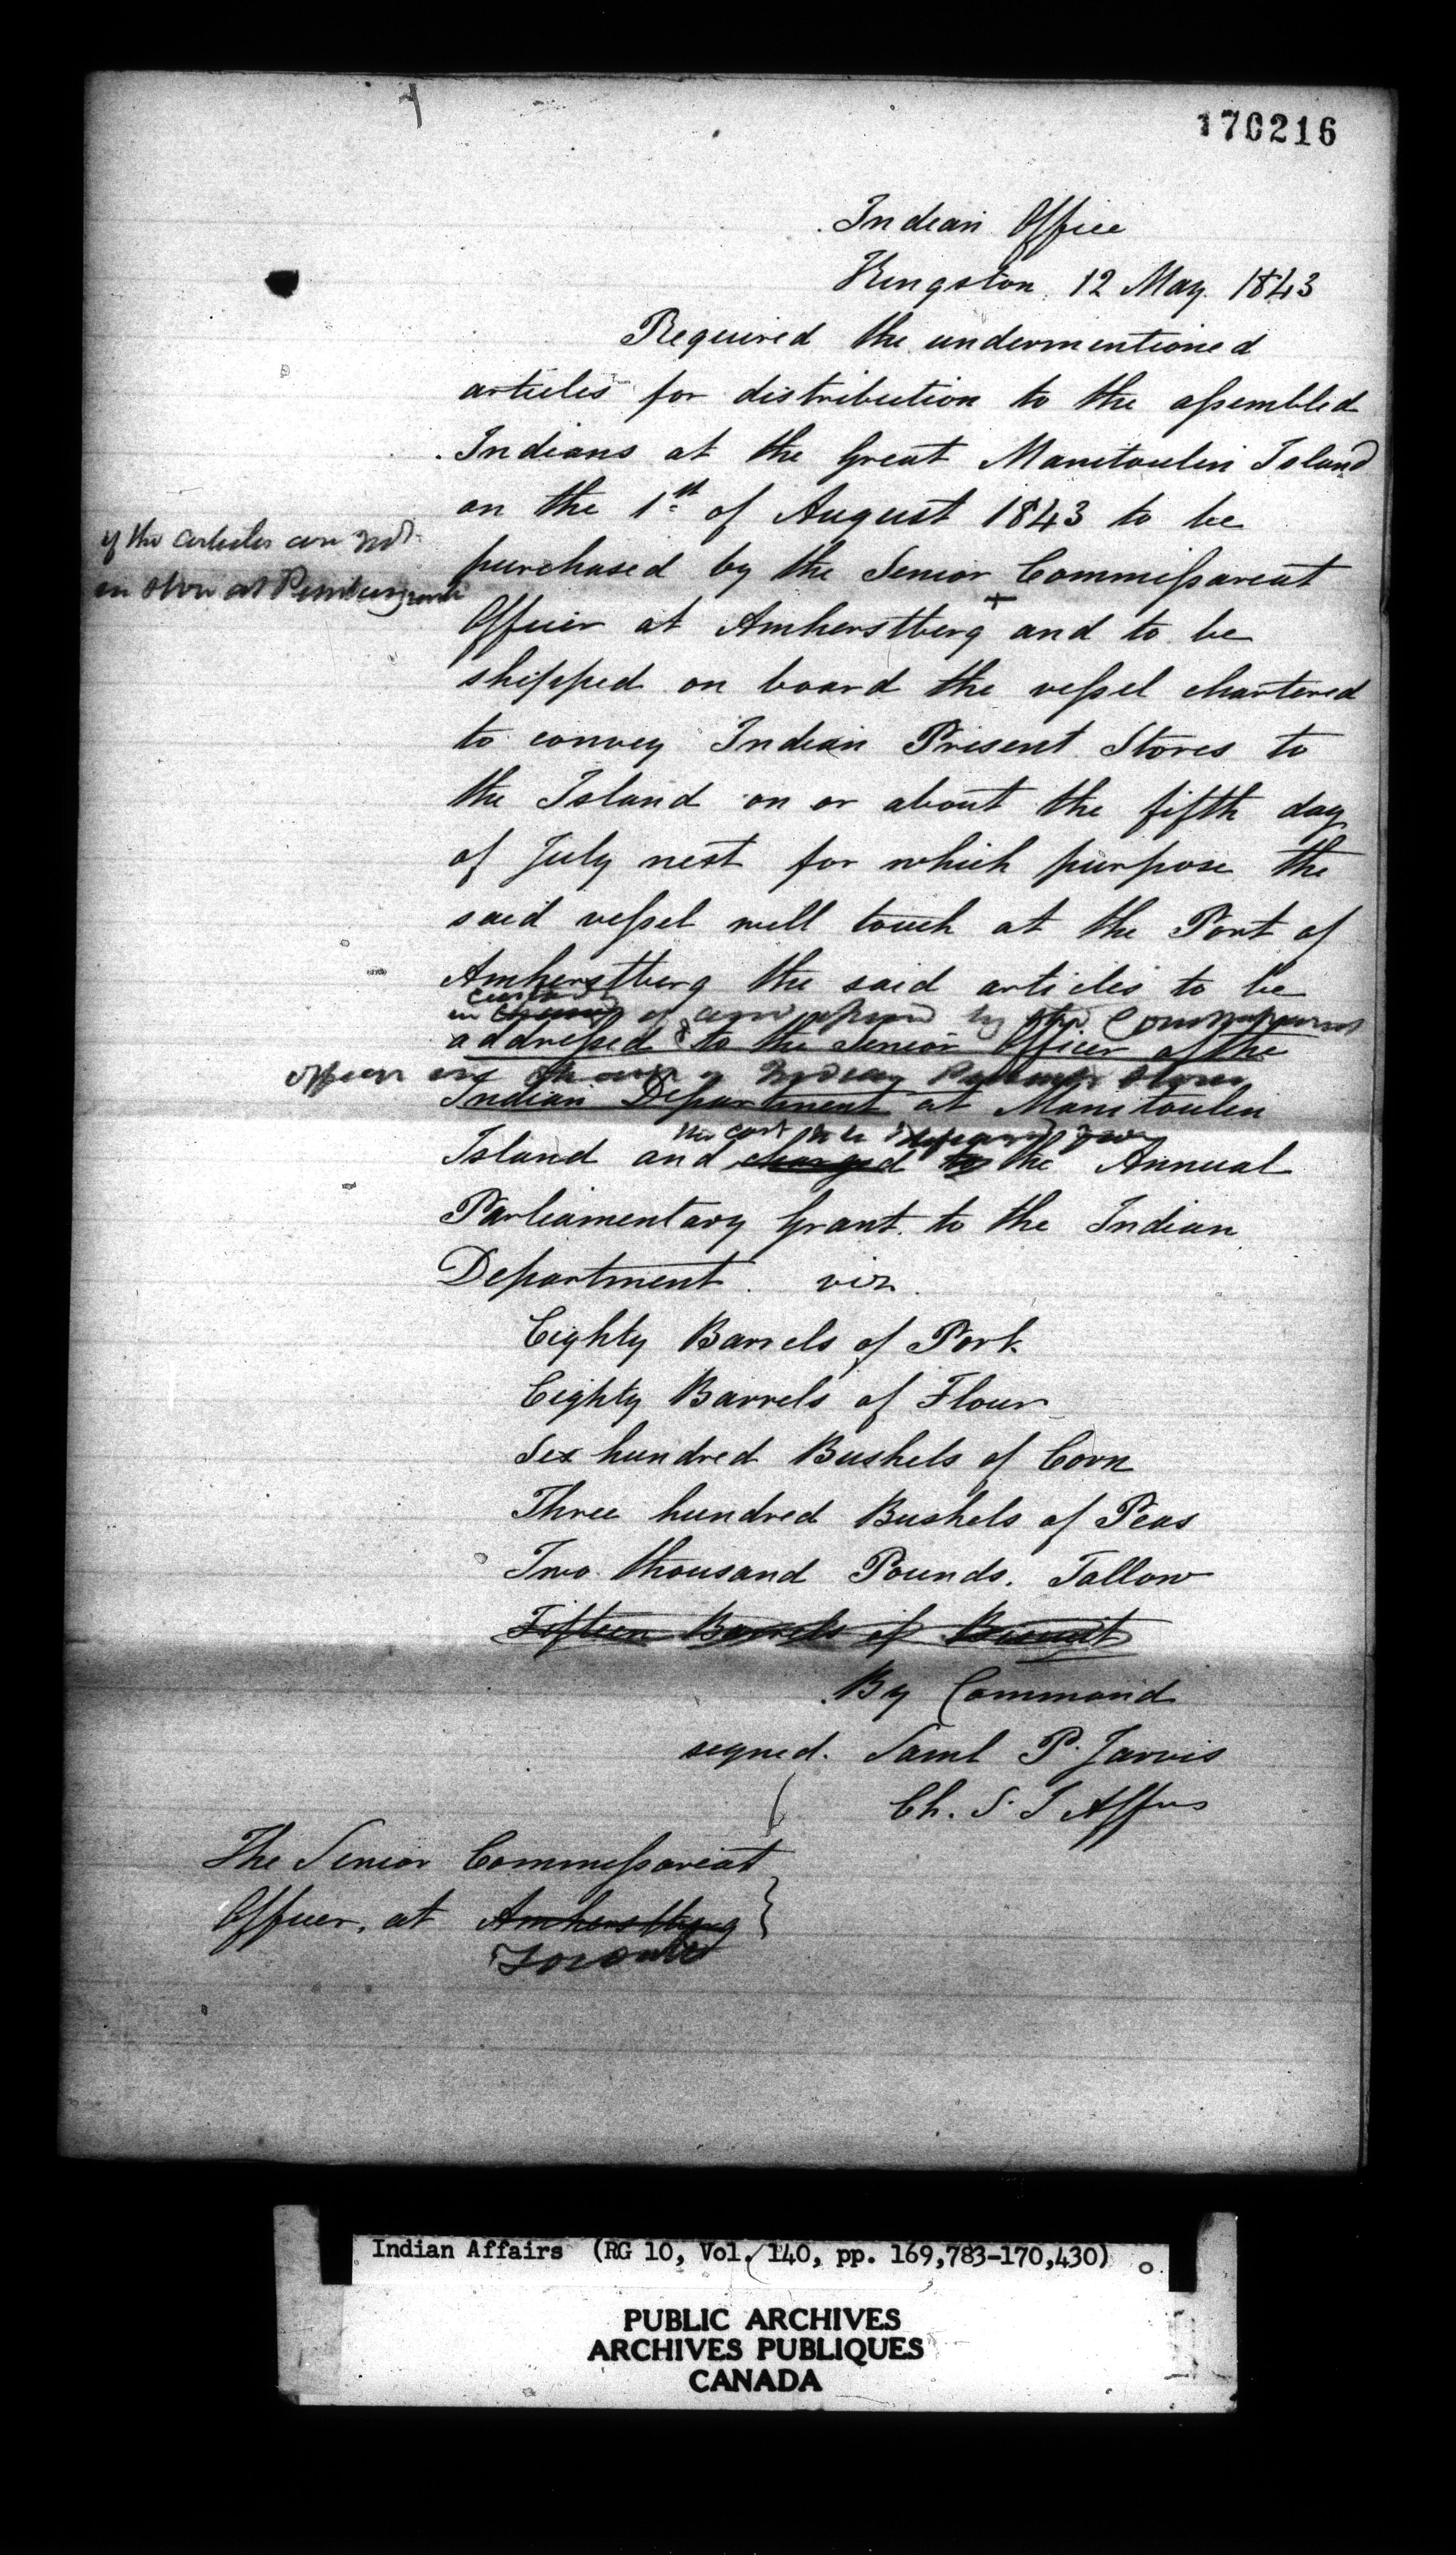 170216
Indian Office
Kingston, 12 May. 1843
Required the undermentioned
articles for distribution to the assembled
Indians at the Great Manitoulin Island
on the 1st of August 1843 to be
if the articles are not
in store at Penetanguishene
purchased by the Senior Commissariat
Officer at Amherstberg + and to be
shipped on board the vessel chartered
to convey Indian Present Stores to
the Island on or about the fifth day
of July next for which purpose the
said vessel will touch at the Port of
Amherstberg the said articles to be
in custody of by the
addressed to the Senior Officer of the
officer in of Indian Present Stores
Indian Department at Manitoulin
the cost to be from
Island and charged to the Annual
Parliamentary Grant to the Indian
Department. viz.
Eighty Barrels of Pork.
Eighty Barrels of Flour
Six hundred Bushels of Corn
Three hundred Bushels of Peas
Two thousand Pounds. Tallow
Fifteen Barrels of Biscuit
By Command
signed. Saml P. Jarvis
Ch. S. I Affrs
The Senior Commissariat
Officer, at Amherstberg }
Toronto
Indian Affairs (RG 10, Vol. 140, pp. 169,783-170,430)
PUBLIC ARCHIVES
ARCHIVES PUBLIQUES
CANADA